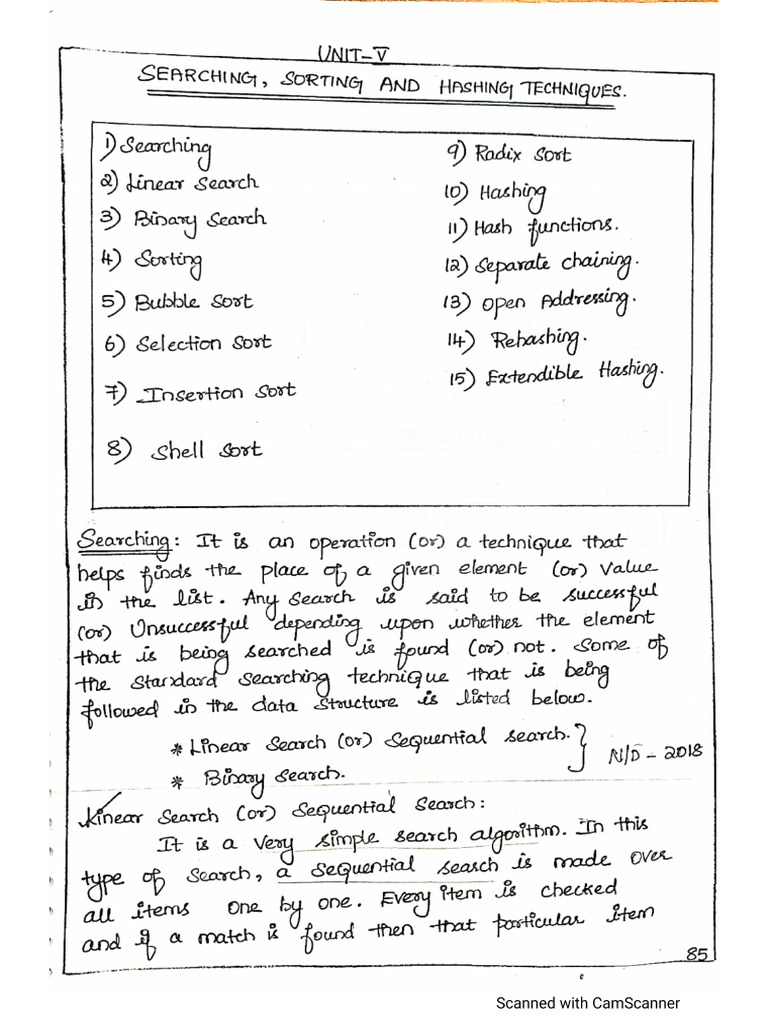 UNIT-V
SEARCHING, SORTING AND HASHING TECHNIQUES.
1) Searching
2) Linear Search
3) Binary Search
4) Sorting
5) Bubble Sort
6) Selection Sort
7) Insertion Sort
8) Shell Sort
9) Radix Sort
10) Hashing
11) Hash functions.
12) Separate chaining.
13) Open Addressing.
14) Rehashing.
15) Extendible Hashing.
Searching: It is an operation (or) a technique that
helps finds the place of a given element (or) value
in the list. Any Search is said to be successful
(or) Unsuccessful depending upon whether the element
that is being searched is found (or) not. Some of
the Standard Searching technique that is being
followed in the data Structure is listed below.
* Linear Search (or) Sequential Search.
* Binary Search.
N/D - 2018
Linear Search (or) Sequential Search:
It is a very simple search algorithm. In this
type of Search, a sequential search is made over
all items one by one. Every item is checked
and if a match is found then that particular item
85
Scanned with CamScanner